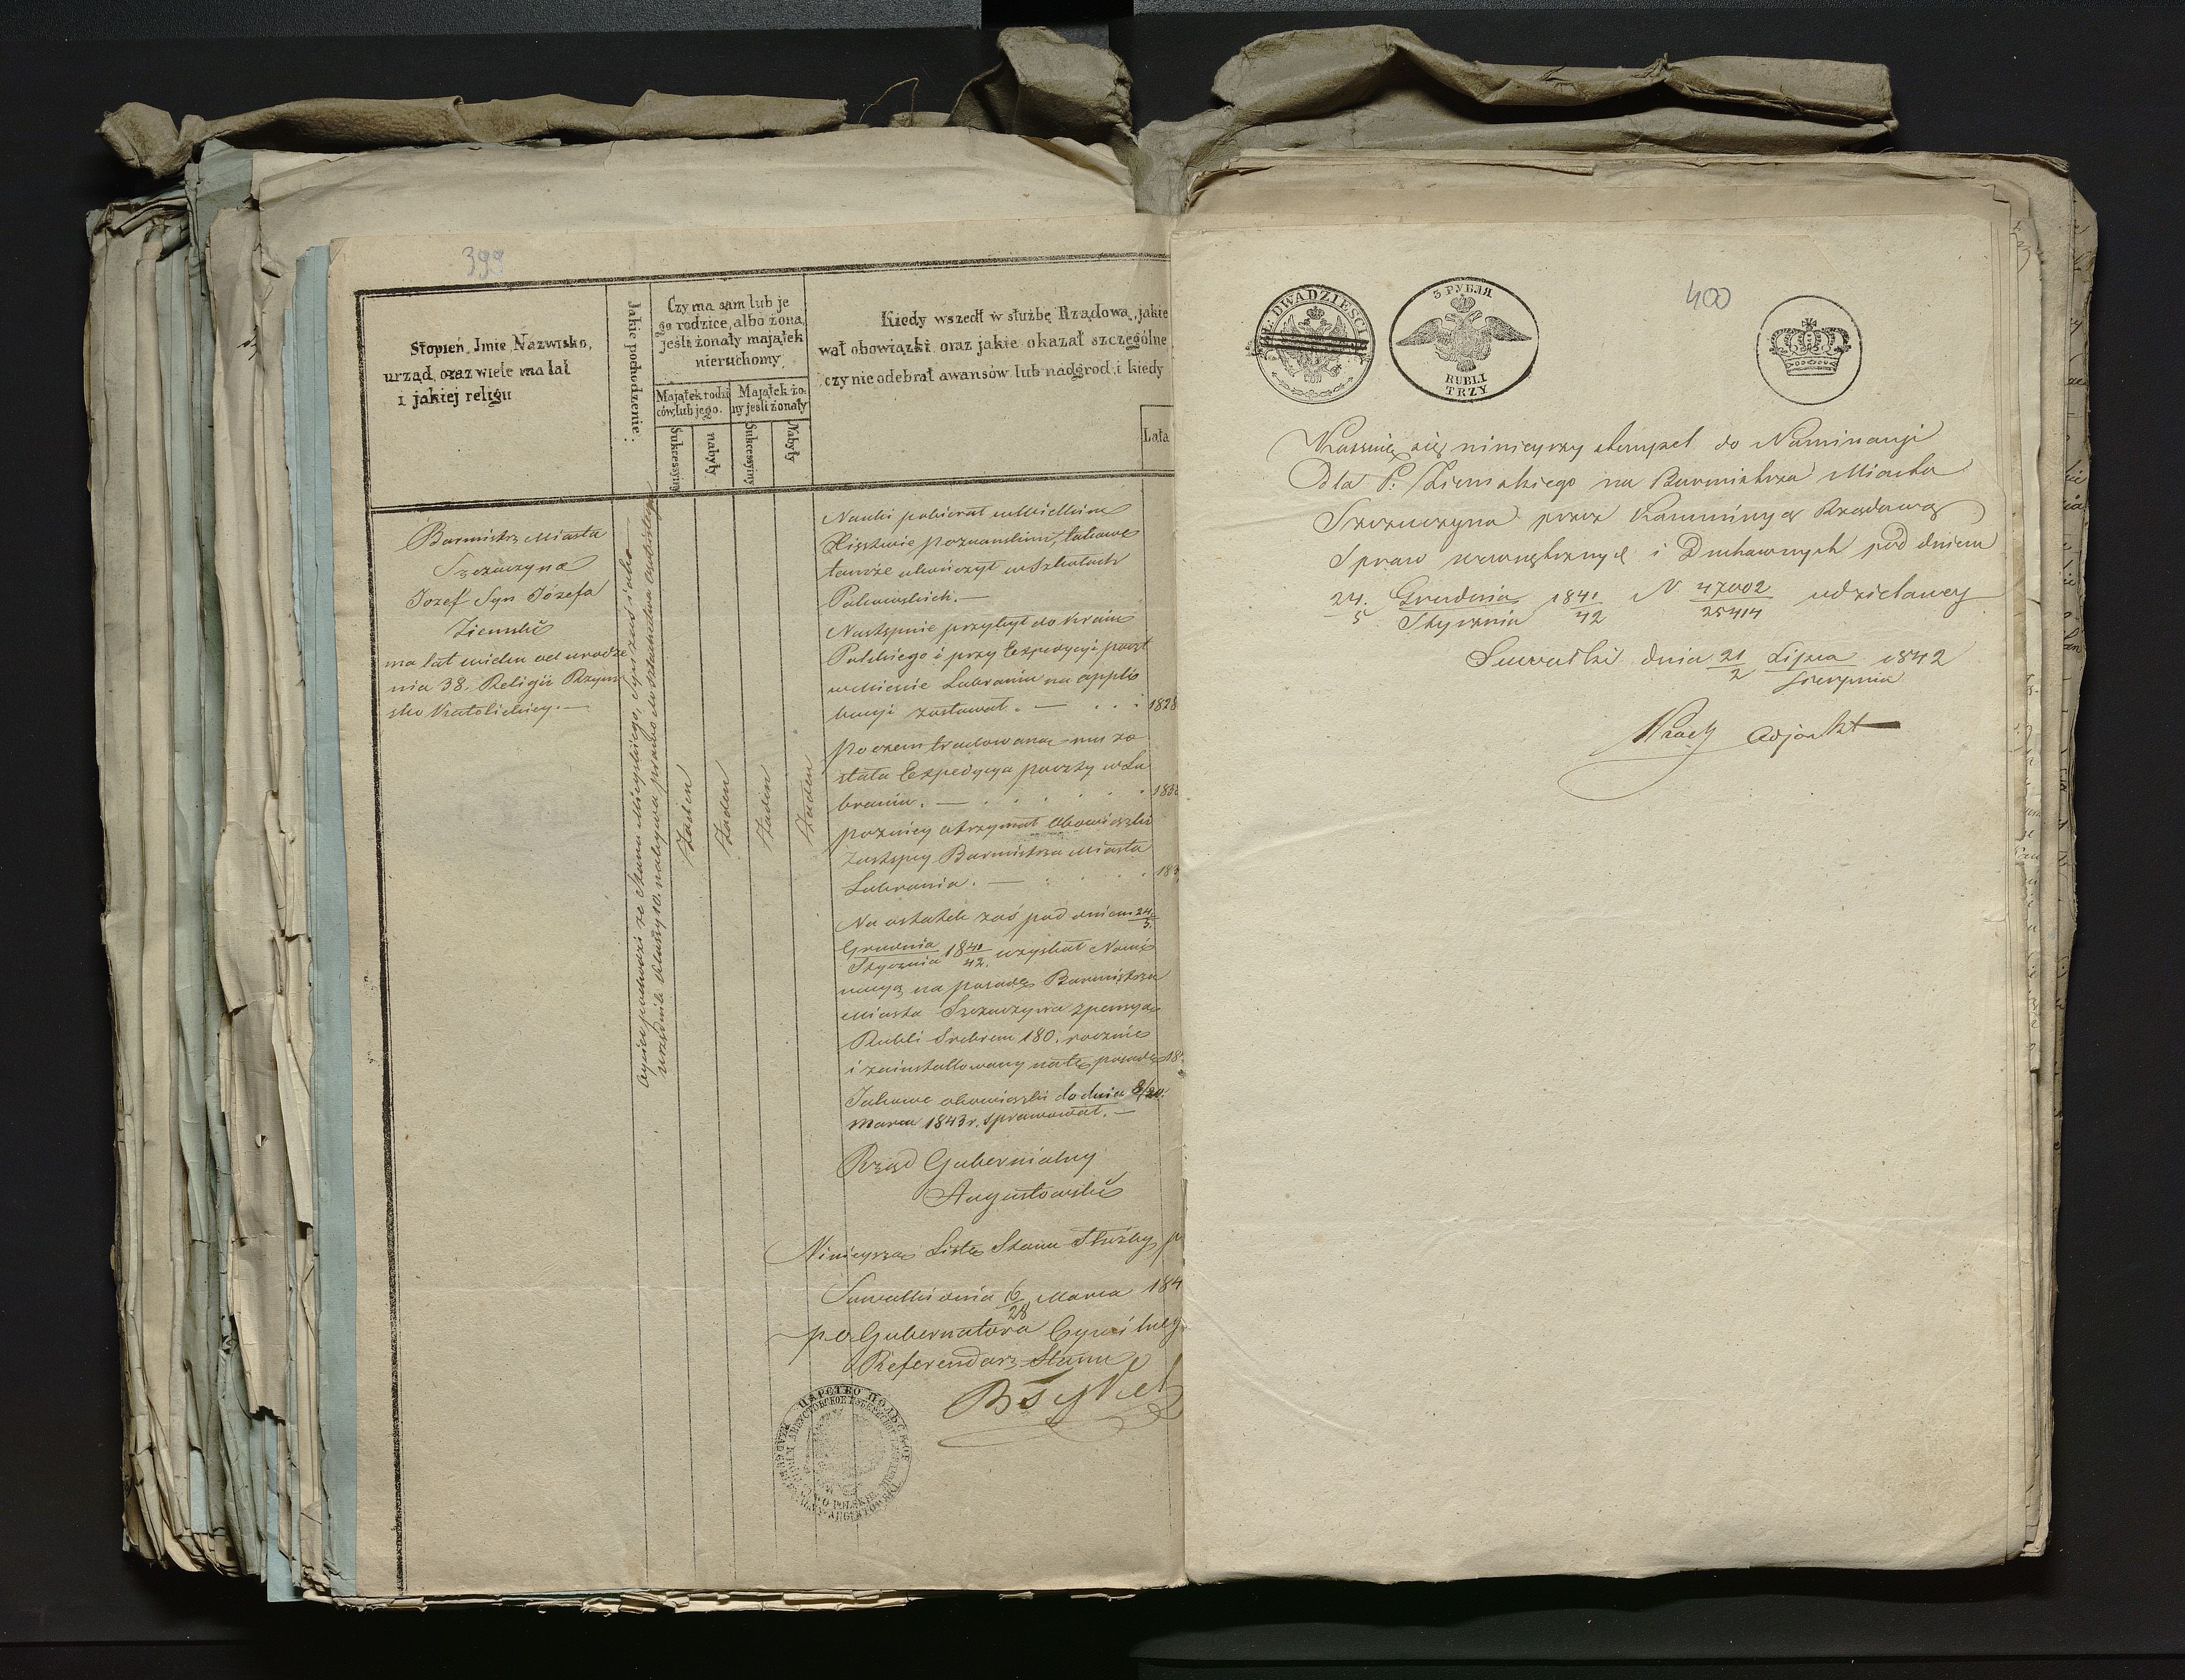 399
Stopień Imie Nazwisko,
urząd, oraz wiele ma lat
i jakiej religii
Jakie pochodzenie:
Czy ma sam lub je
go rodzice, albo żona,
jeśli żonaty majątek
nieruchomy
Majątek rodzi
ców, lub jego.
Majątek żo-
ny jeśli żonaty
Sukcessyiny
nabyty
Sukcessyiny
Nabyty
Kiedy wszedł w służbę Rządową, jakie
wał obowiązki oraz jakie okazał szczególne
czy nie odebrał awansów lub nadgrod, i kiedy
Lata
Burmistrz Miasta
Szczuczyna
Józef Syn Józefa
Ziemski
ma lat wieku od urodze
nia 38. Religii Rzym
sko Katolickiey. —
Oyciec pochodzi ze Stanu Mieyskiego, Syn zaś jako
urzędnik Klassy 10. nabywa prawo do szlachectwa osobistego
Żaden
Żaden
Żaden
Żaden
Nauki pobierał w Wielkim
Xięstwie poznanskim, takowe
tamże ukończył w Szkołach
Następnie przybył do Kraiu
Polskiego i przy Expedycyi poczt
w Mieście Lubraniu na appli
kacyi zostawał. — 1828
poczem tradowana mu zo
stała Expedycya poczty w Lu
braniu. — 183
pozniey otrzymał Obowiązki
Zastępcy Burmistrza Miasta
Lubrania. — 183
Na ostatek zaś pod dniem 24/5
Grudnia/Stycznia 18 41/42. uzyskał Nomi
nacyą na posadę Burmistrza
Miasta Szczuczyna z pensyą
Rubli Srebrem 180. rocznie
i zainstallowany na tę posadę 18
Takowe obowiązki do dnia 8/20.
Marca 1843 r. sprawował. —
Rząd Gubernialny
Augustowski
Ninieyszą Listę Stanu Służby p
Suwałki dnia 16/28 Marca 184
po Gubernatora Cywilneg
Referendarz Stanu
ЦАРСТВО ПОЛЬСКОЕ
400
DWADZIEŚCI
3 РУБЛЯ
RUBLI
TRZY
Kassuię się ninieyszy stempel do Nominacyi
Dla P. Ziemskiego na Burmistrza Miasta
Szczuczyna przez Kommissyą Rządową
Spraw wewnętrznych i Duchownych pod dniem
24./5 Grudnia/Stycznia 1841/42 N 47002/25414 udzieloney
Suwałki dnia 21/2 Lipca/Sierpnia 1842
Adjunkt